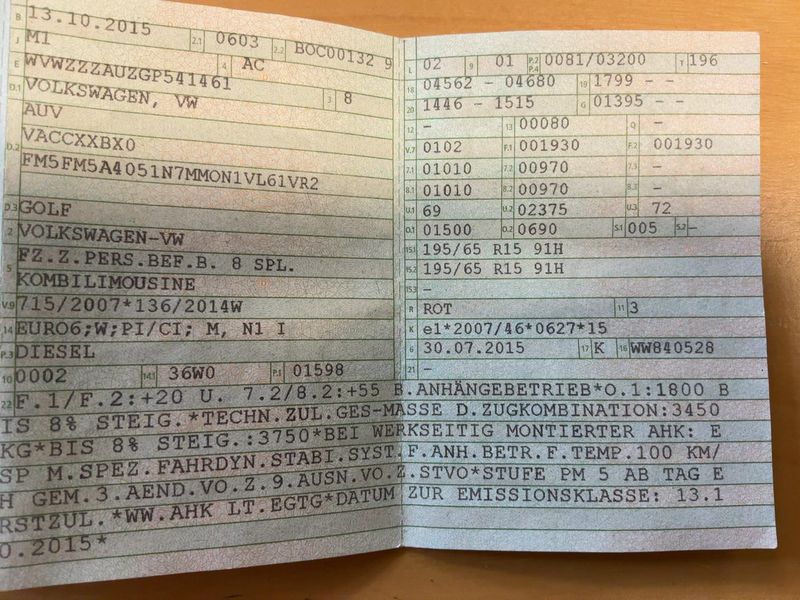 B 13.10.2015 2.1 0603 2.2 BOC00132 9
J M1 4 AC
E WVWZZZAUZGP541461
D.1 VOLKSWAGEN, VW 3 8
AUV
VACCXXBX0
D.2 FM5FM5A4051N7MMON1VL61VR2
D.3 GOLF
2 VOLKSWAGEN-VW
5 FZ.Z.PERS.BEF.B. 8 SPL.
KOMBILIMOUSINE
V.9 715/2007*136/2014W
14 EURO6;W;PI/CI; M, N1 I
P.3 DIESEL
10 0002 14.1 36W0 P.1 01598
L 02 9 01 P.2 P.4 0081/03200 T 196
18 04562 - 04680 19 1799 - -
20 1446 - 1515 G 01395 - -
12 - 13 00080 Q -
V.7 0102 F.1 001930 F.2 001930
7.1 01010 7.2 00970 7.3 -
8.1 01010 8.2 00970 8.3 -
U.1 69 U.2 02375 U.3 72
O.1 01500 O.2 0690 S.1 005 S.2 -
15.1 195/65 R15 91H
15.2 195/65 R15 91H
15.3 -
R ROT 11 3
K e1*2007/46*0627*15
6 30.07.2015 17 K 16 WW840528
21 -
22 F.1/F.2:+20 U. 7.2/8.2:+55 B.ANHÄNGEBETRIEB*O.1:1800 B
IS 8% STEIG.*TECHN.ZUL.GES-MASSE D.ZUGKOMBINATION:3450
KG*BIS 8% STEIG.:3750*BEI WERKSEITIG MONTIERTER AHK: E
SP M.SPEZ.FAHRDYN.STABI.SYST.F.ANH.BETR.F.TEMP.100 KM/
H GEM.3.AEND.VO.Z.9.AUSN.VO.Z.STVO*STUFE PM 5 AB TAG E
RSTZUL.*WW.AHK LT.EGTG*DATUM ZUR EMISSIONSKLASSE: 13.1
0.2015*